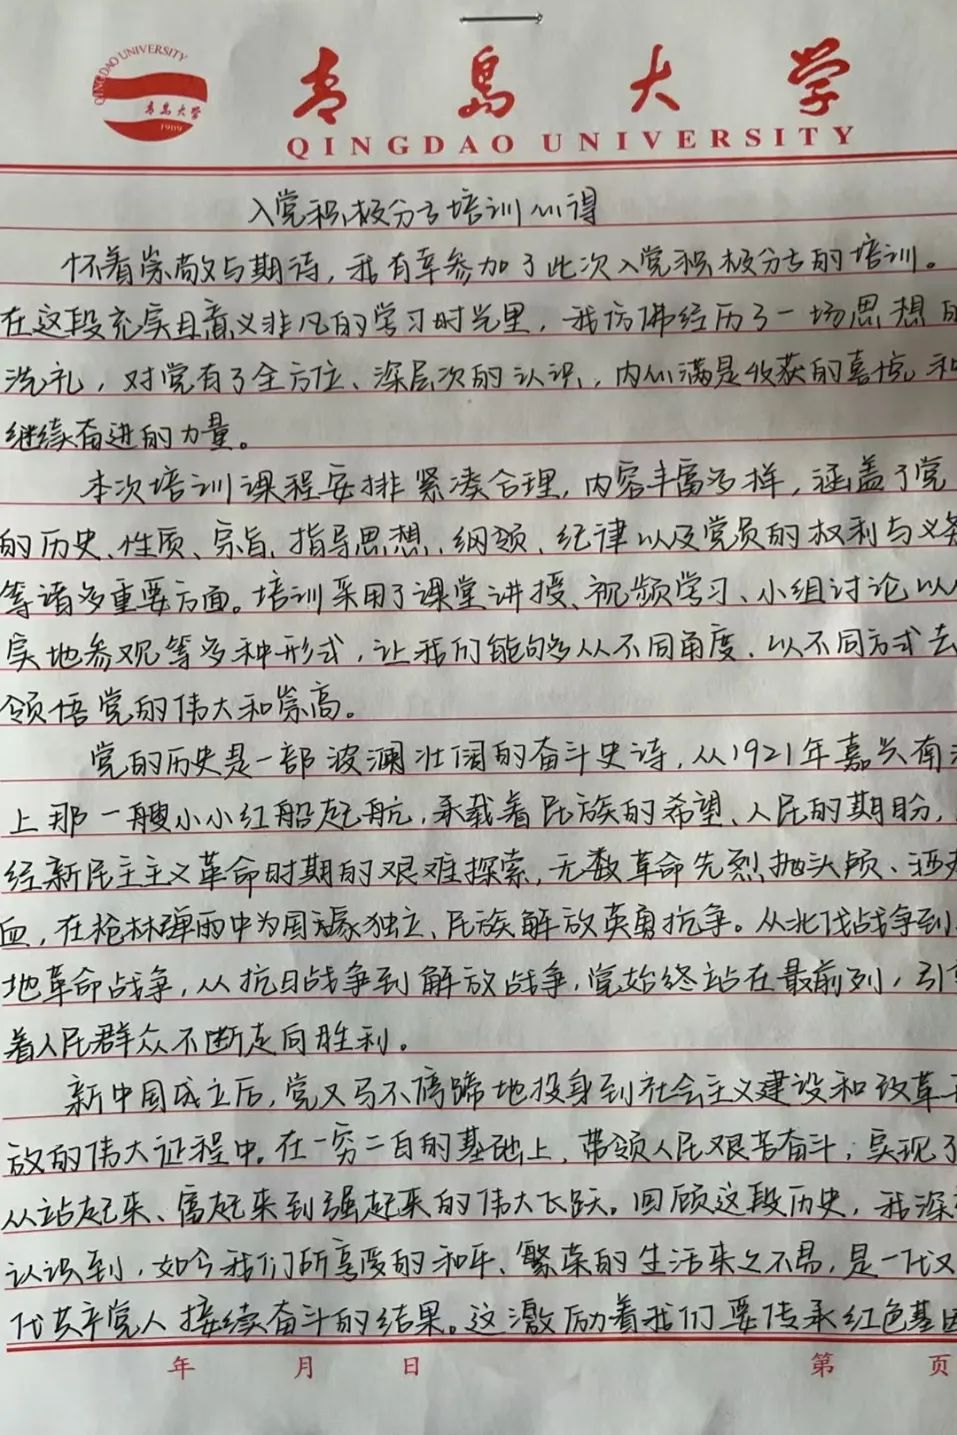 QINGDAO UNIVERSITY
青岛大学
1909
青岛大学
QINGDAO UNIVERSITY
入党积极分子培训心得
怀着崇敬与期待，我有幸参加了此次入党积极分子的培训。
在这段充实且意义非凡的学习时光里，我仿佛经历了一场思想的
洗礼，对党有了全方位、深层次的认识，内心满是收获的喜悦和
继续奋进的力量。
本次培训课程安排紧凑合理，内容丰富多样，涵盖了党
的历史、性质、宗旨、指导思想、纲领、纪律以及党员的权利与义务
等诸多重要方面。培训采用了课堂讲授、视频学习、小组讨论以
实地参观等多种形式，让我们能够从不同角度、以不同方式去
领悟党的伟大和崇高。
党的历史是一部波澜壮阔的奋斗史诗，从1921年嘉兴南
上那一艘小小红船起航，承载着民族的希望、人民的期盼，
经新民主主义革命时期的艰难探索，无数革命先烈抛头颅、洒
血，在枪林弹雨中为国家独立、民族解放英勇抗争。从北伐战争到
地革命战争，从抗日战争到解放战争，党始终站在最前列，引
着人民群众不断走向胜利。
新中国成立后，党又马不停蹄地投身到社会主义建设和改革
放的伟大征程中。在一穷二白的基础上，带领人民艰苦奋斗，实现了
从站起来、富起来到强起来的伟大飞跃。回顾这段历史，我深
认识到，如今我们所享受的和平、繁荣的生活来之不易，是一代又
代共产党人接续奋斗的结果。这激励着我们要传承红色基因
年 月 日 第 页